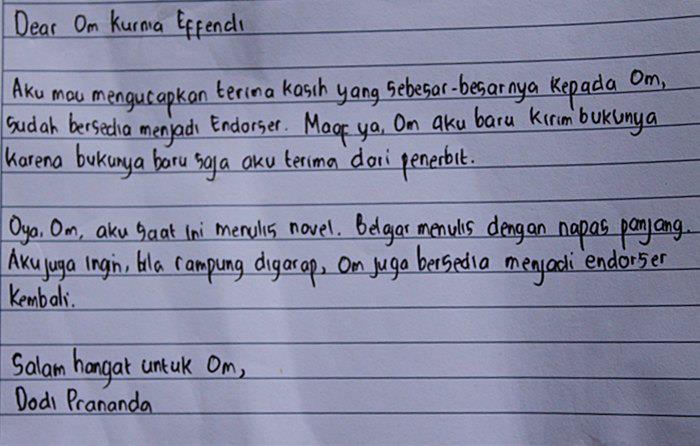 Dear Om Kurnia Effendi
Aku mau mengucapkan terima kasih yang sebesar-besarnya kepada Om,
sudah bersedia menjadi Endorser. Maaf ya, Om aku baru kirim bukunya
karena bukunya baru saja aku terima dari penerbit.
Oya, Om, aku saat ini menulis novel. Belajar menulis dengan napas panjang.
Aku juga ingin, bila rampung digarap, Om juga bersedia menjadi endorser
kembali.
Salam hangat untuk Om,
Dodi Prananda